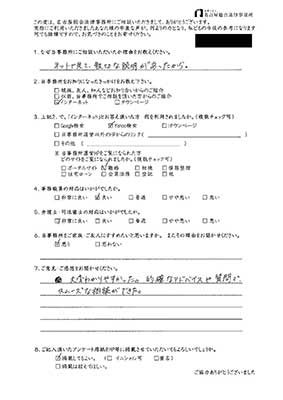 名古屋総合法律事務所
この度は、名古屋総合法律事務所にご相談いただきまして、ありがとうございます。
何でも結構ですので、お気づきのことをお書き下さい。
1.なぜ当事務所にご相談いただいたか理由をお教えください。
ネットで見て、親切な説明があったから。
2.当事務所をお知りになったきっかけをお教え下さい。
□親族、友人、知人などお知り合いからのご紹介
□役所、各事務所でご相談を頂いた方からのご紹介
☑インターネット □タウンページ
3.上記2.で、「インターネット」とお答え頂いた方 何を利用されましたか。(複数チェック可)
□Google検索 ☑Yahoo検索 □タウンページ
□当事務所運営以外のHPからのリンク( )
□その他( )
※当事務所運営HPをご覧になられた方
どのサイトをご覧になられましたか。(複数チェック可)
□ポータルサイト ☑離婚 □相続 □債務整理
□住宅ローン □企業法務 □登記 □他
4.事務職員の対応はいかがでしたか。
□非常に良い ☑良い □普通 □やや悪い □悪い
5.弁護士・司法書士の対応はいかがでしたか。
☑非常に良い □良い □普通 □やや悪い □悪い
6.当事務所をご家族 ご友人にすすめたいと思いますか。 またその理由をお聞かせ下さい。
☑思う □思わない
7.ご意見 ご感想をお聞かせください。
大変わかりやすかった。的確なアドバイスや質問で、
スムーズな相談ができた。
8.ご記入頂いたアンケート用紙をHP等に掲載させていただいてもよろしいでしょうか。
☑掲載してもよい。 (□イニシャル可 □匿名)
□掲載は控えてほしい。
ご協力ありがとうございました